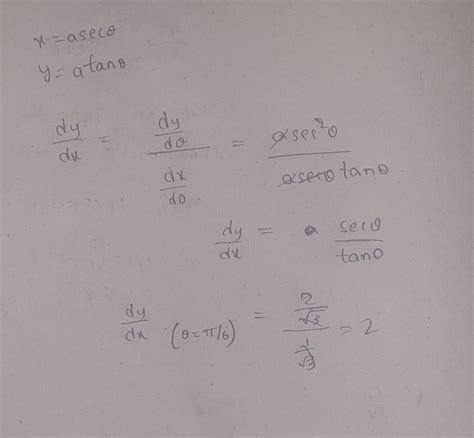 x = a secθ
y = a tanθ
dy/dx = (dy/dθ)/(dx/dθ) = a sec²θ / a secθ tanθ
dy/dx = secθ / tanθ
dy/dx (θ = π/6) = (2/√3)/(1/√3) = 2